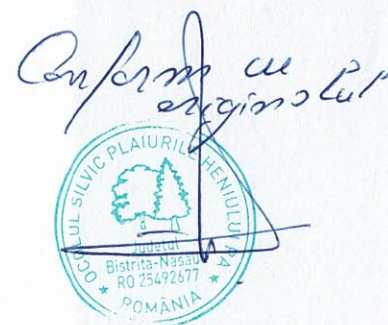 Conform cu
originalul
OCOLUL SILVIC PLAIURILE HENIULUI RA
Judetul
Bistrita-Nasaud
RO 25492677
* ROMÂNIA *